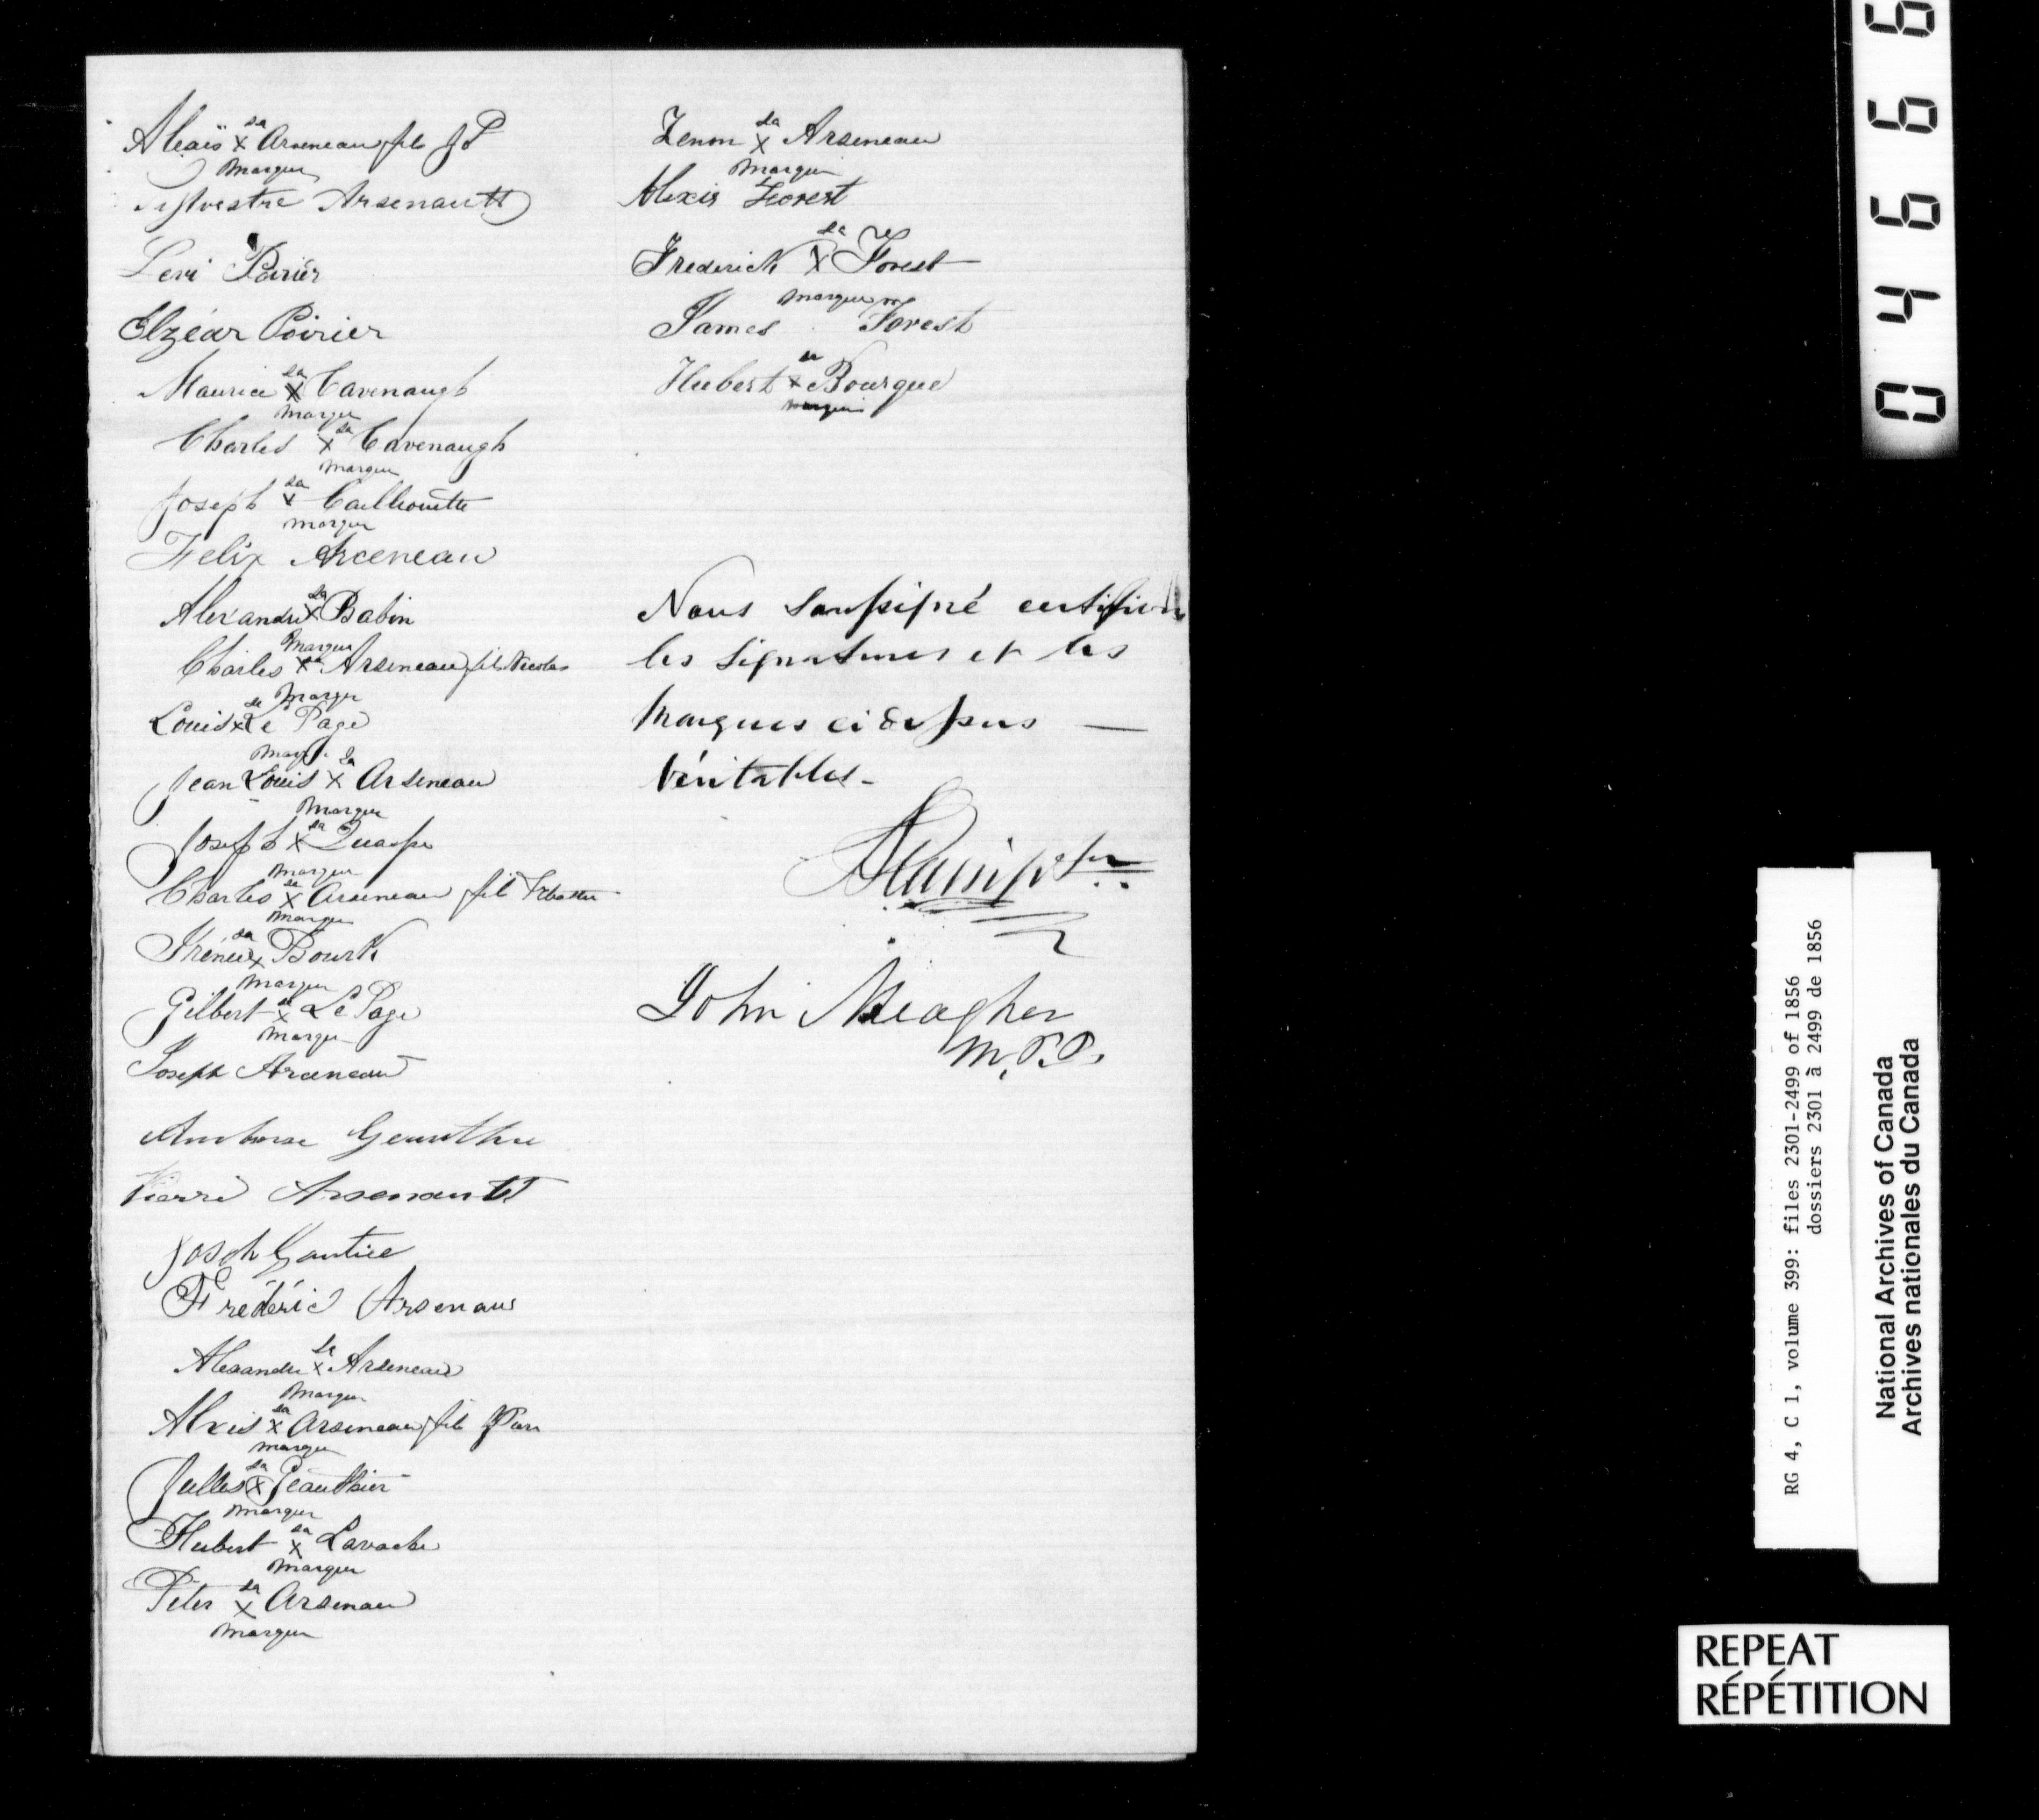 Alexis sa X Arseneau fils JP
marque
Sylvestre Arsenault
Levi Poirier
Elzéar Poirier
Maurice sa X Cavenaugh
marque
Charles sa X Cavenaugh
marque
Joseph sa X Cailhouette
marque
Felix Arceneau
Alexandre sa X Babin
marque
Charles sa X Arseneau fils Nicolas
marque
Louis sa X Le Page
marque
Jean Louis sa X Arseneau
marque
Joseph sa X
marque
Charles sa X Arseneau fils
marque
Irénée sa X Bourk
marque
Gilbert sa X Le Page
marque
Joseph Arceneau
Ambroise
Pierre Arsenault
Josph Gautier
Fréderic Arsenau
Alexandre sa X Arseneau
marque
Alexis sa X Arseneau fils
marque
Julles sa X Geauthier
marque
Hubert sa X Lavache
marque
Peter sa X Arsenau
marque
Zenon sa X Arseneau
marque
Alexis Forest
Frederick sa X Forest
marque
James Forest
Hubert sa X Bourque
marque
Nous soussigné certifions
les signatures et les
marques ci dessus —
véritables -
John Meagher
M.P.P.
04666
RG 4, C 1, volume 399: files 2301-2499 of 1856
dossiers 2301 à 2499 de 1856
National Archives of Canada
Archives nationales du Canada
REPEAT
RÉPÉTITION